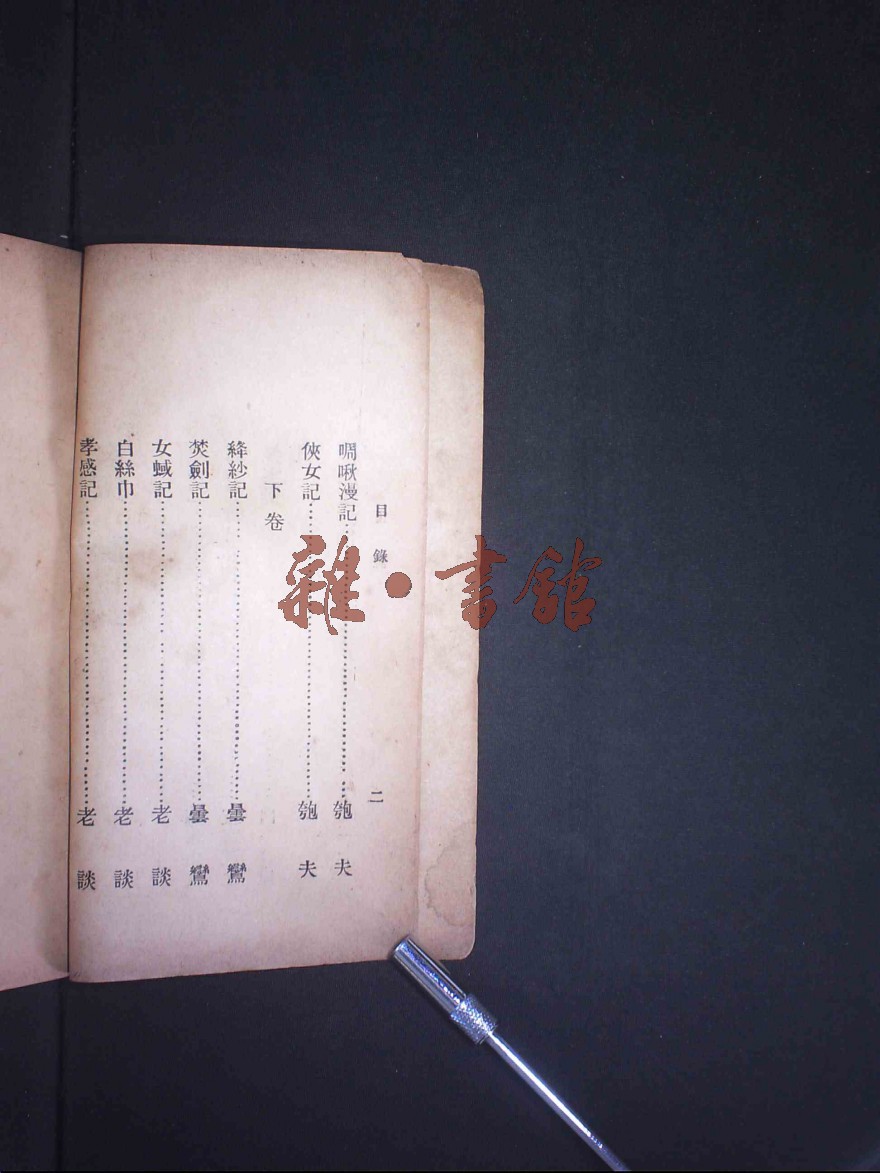 目錄 二
啁啾漫記 匏夫
俠女記 匏夫
下卷
絳紗記 曇鸞
焚劍記 曇鸞
女蜮記 老談
白絲巾 老談
孝感記 老談
雜·書館